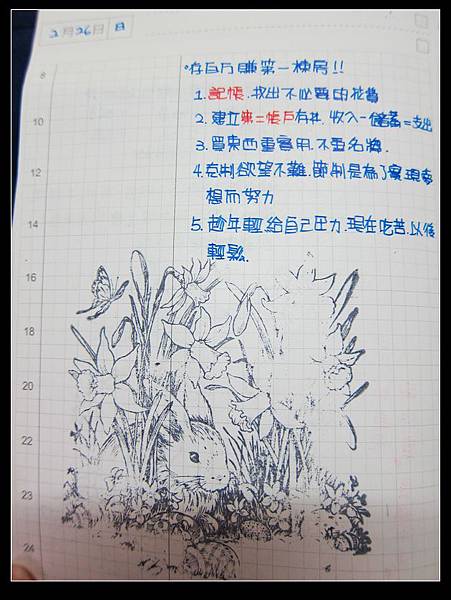 2月26日 日
•存百万賺第一棟房!!
1.記帳.找出不必要的花費
2.建立第二帳戶存款.收入-儲蓄=支出
3.買東西重實用.不重名牌.
4.克制欲望不難.節制是為了實現夢
想而努力
5.趁年輕.給自己压力.現在吃苦.以後
輕鬆.
8
10
12
14
16
18
20
22
23
24